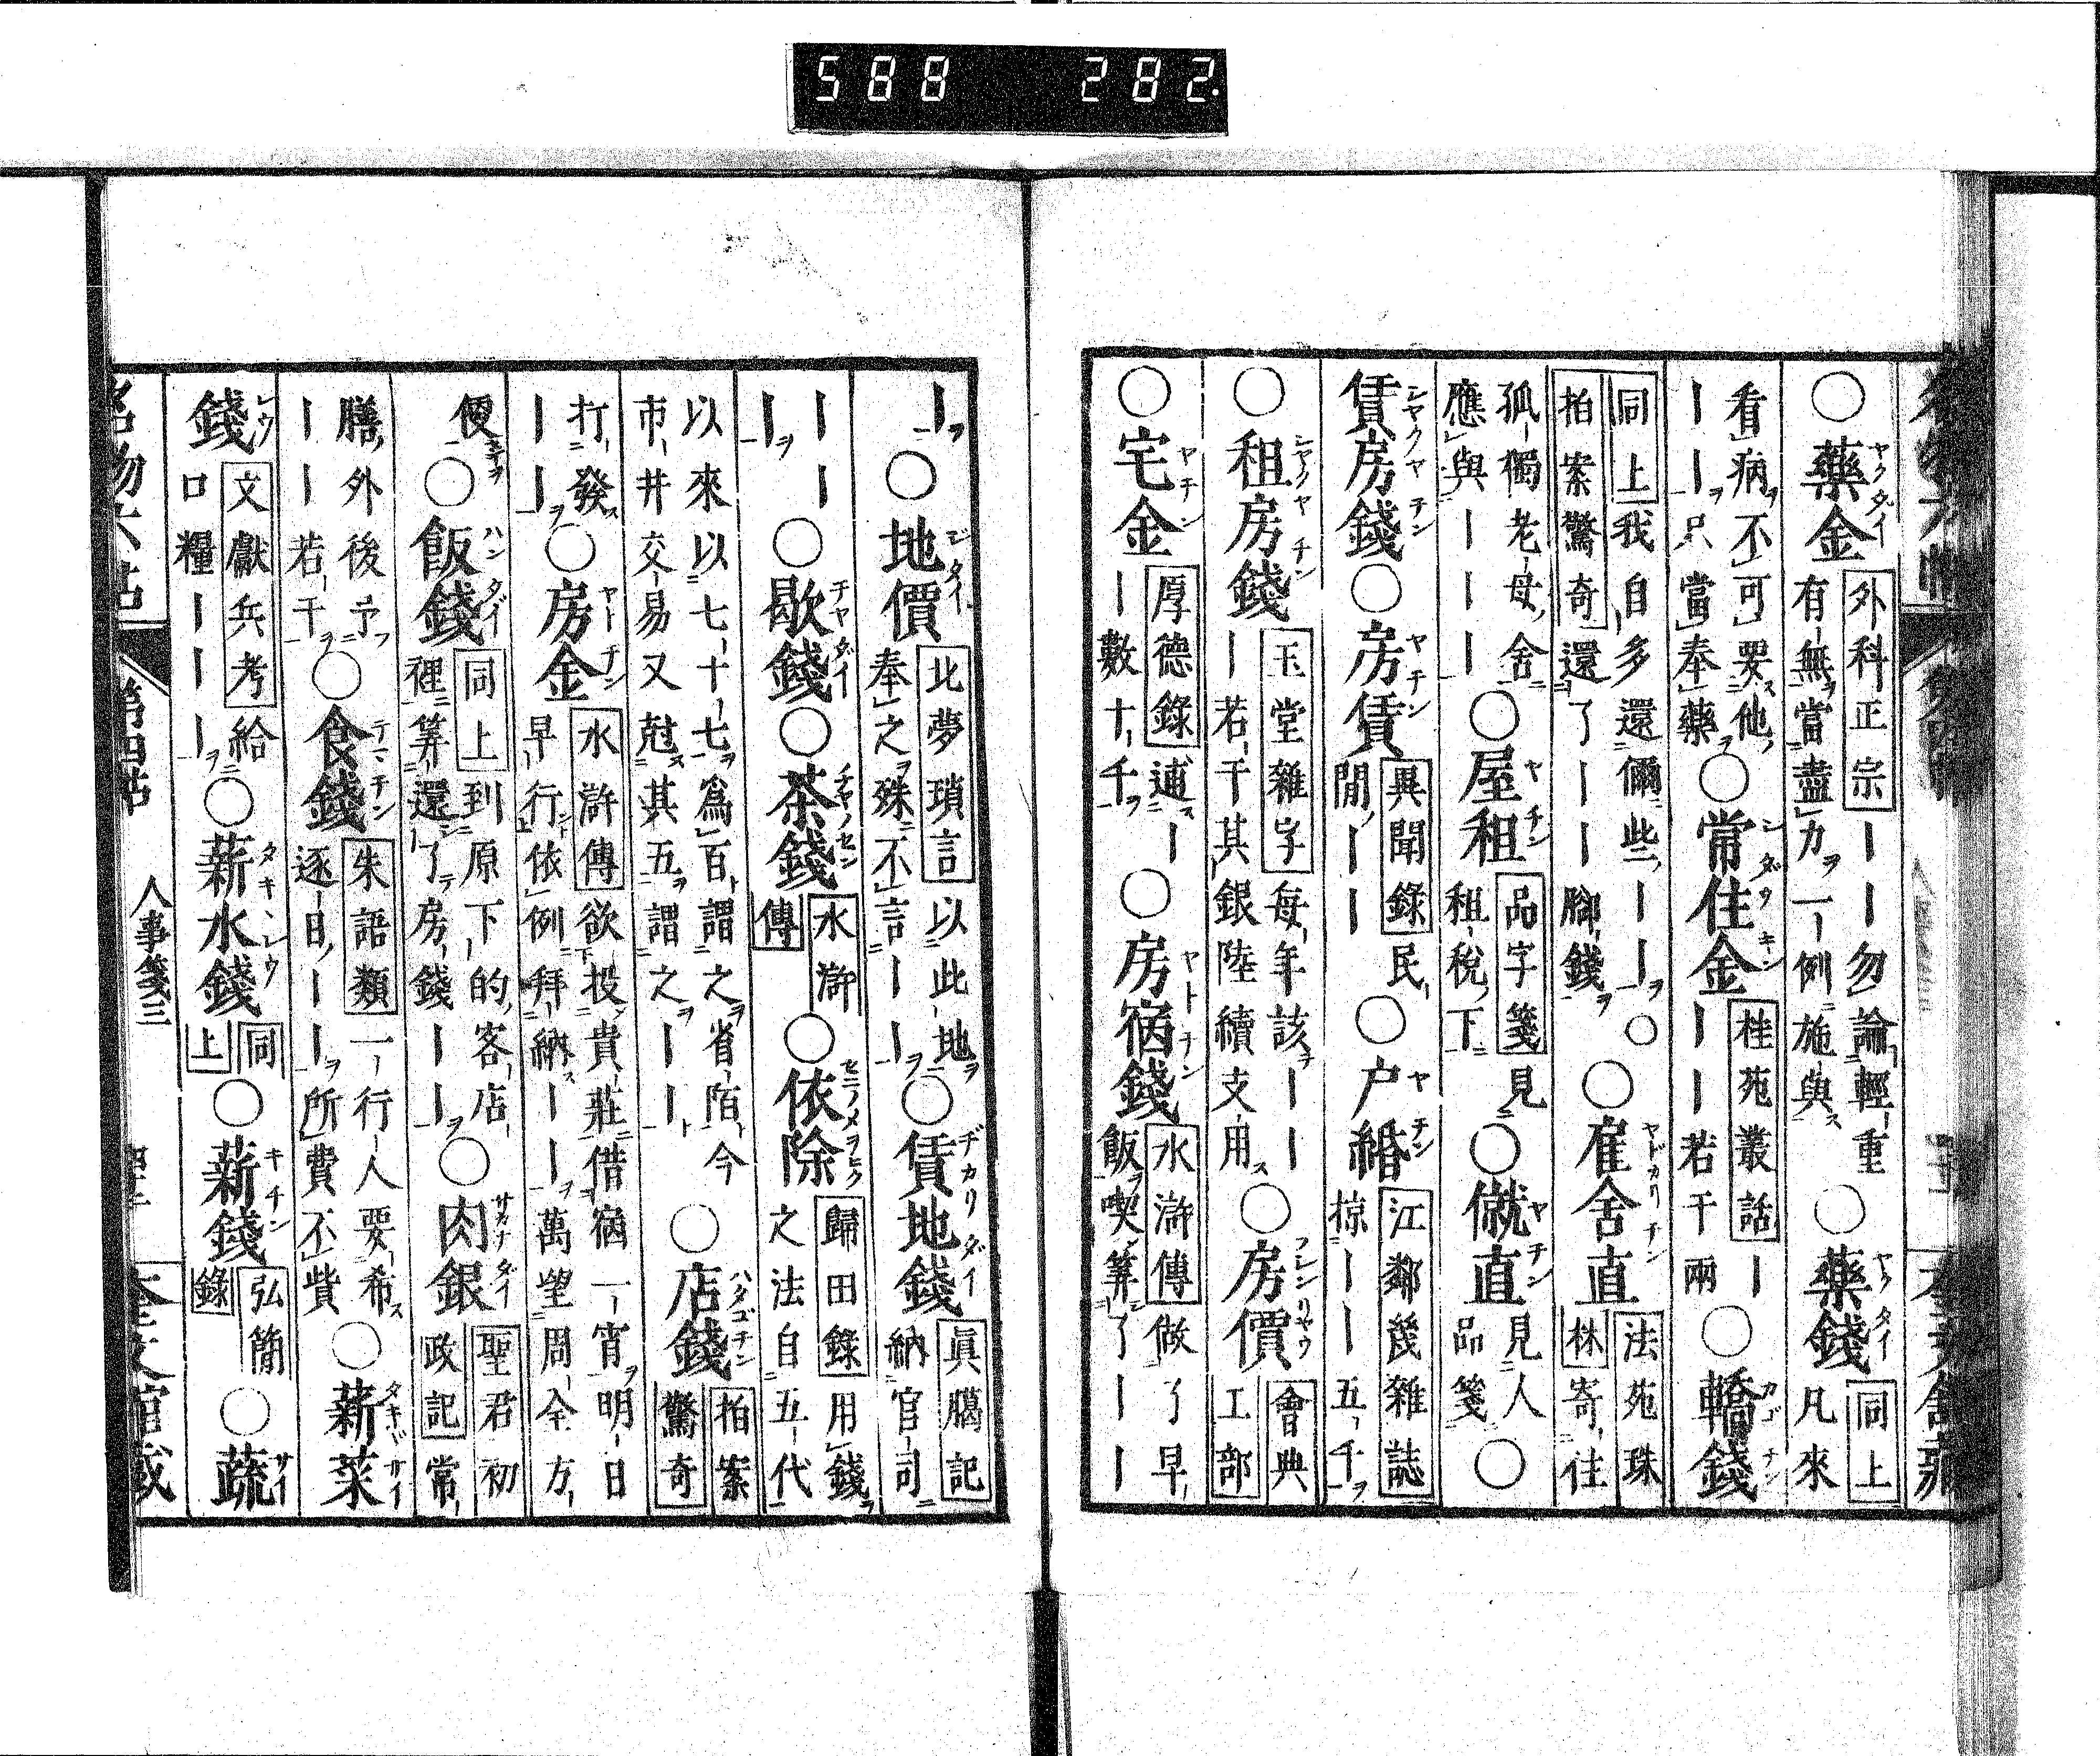 588 282.
○藥金
外科正宗｜｜勿論輕重
有無當盡力一例施與
○藥錢
同上
凡來
看病不可要他
｜｜只當奉藥
○常住金
桂苑叢話｜
｜｜若干兩
○轎錢
同上我自多還儞些｜｜○
拍案驚奇還了｜｜脚錢
○雇舍直
法苑珠
林寄往
孤獨老母舍
應與｜｜｜
○屋租
品字箋見
租稅下
○僦直
見人
品箋
○
賃房錢○房賃
異聞錄民
間｜｜
○户緡
江鄰幾雜誌
掠｜｜五千
○租房錢
玉堂雜字每年該｜｜
｜若干其銀陸續支用
○房價
會典
工部
○宅金
厚德錄逋｜
｜數十千
○房宿錢
水滸傳做了早
飯喫筭了｜｜
｜○地價
北夢瑣言以此地
奉之殊不言｜｜
○賃地錢
眞臈記
納官司
｜｜
｜
○歇錢○茶錢
水滸
傳
○依除
歸田錄用錢
之法自五代
以來以七十七爲百謂之省陌今
市井交易又尅其五謂之｜｜
○店錢
拍案
驚奇
打發
｜｜
○房金
水滸傳欲投貴莊借宿一宵明日
早行依例拜納｜｜萬望周全方
便○飯錢
同上到原下的客店
裡筭還了房錢｜｜
○肉銀
聖君初
政記常
膳外後予
｜｜若干
○食錢
朱語類一行人要希
逐日｜｜所費不貲
○薪菜
錢
文獻兵考給
口糧｜｜｜
○薪水錢
同
上
○薪錢
弘簡
錄
○蔬
名物六帖 第四帖 人事箋三 奎文館藏